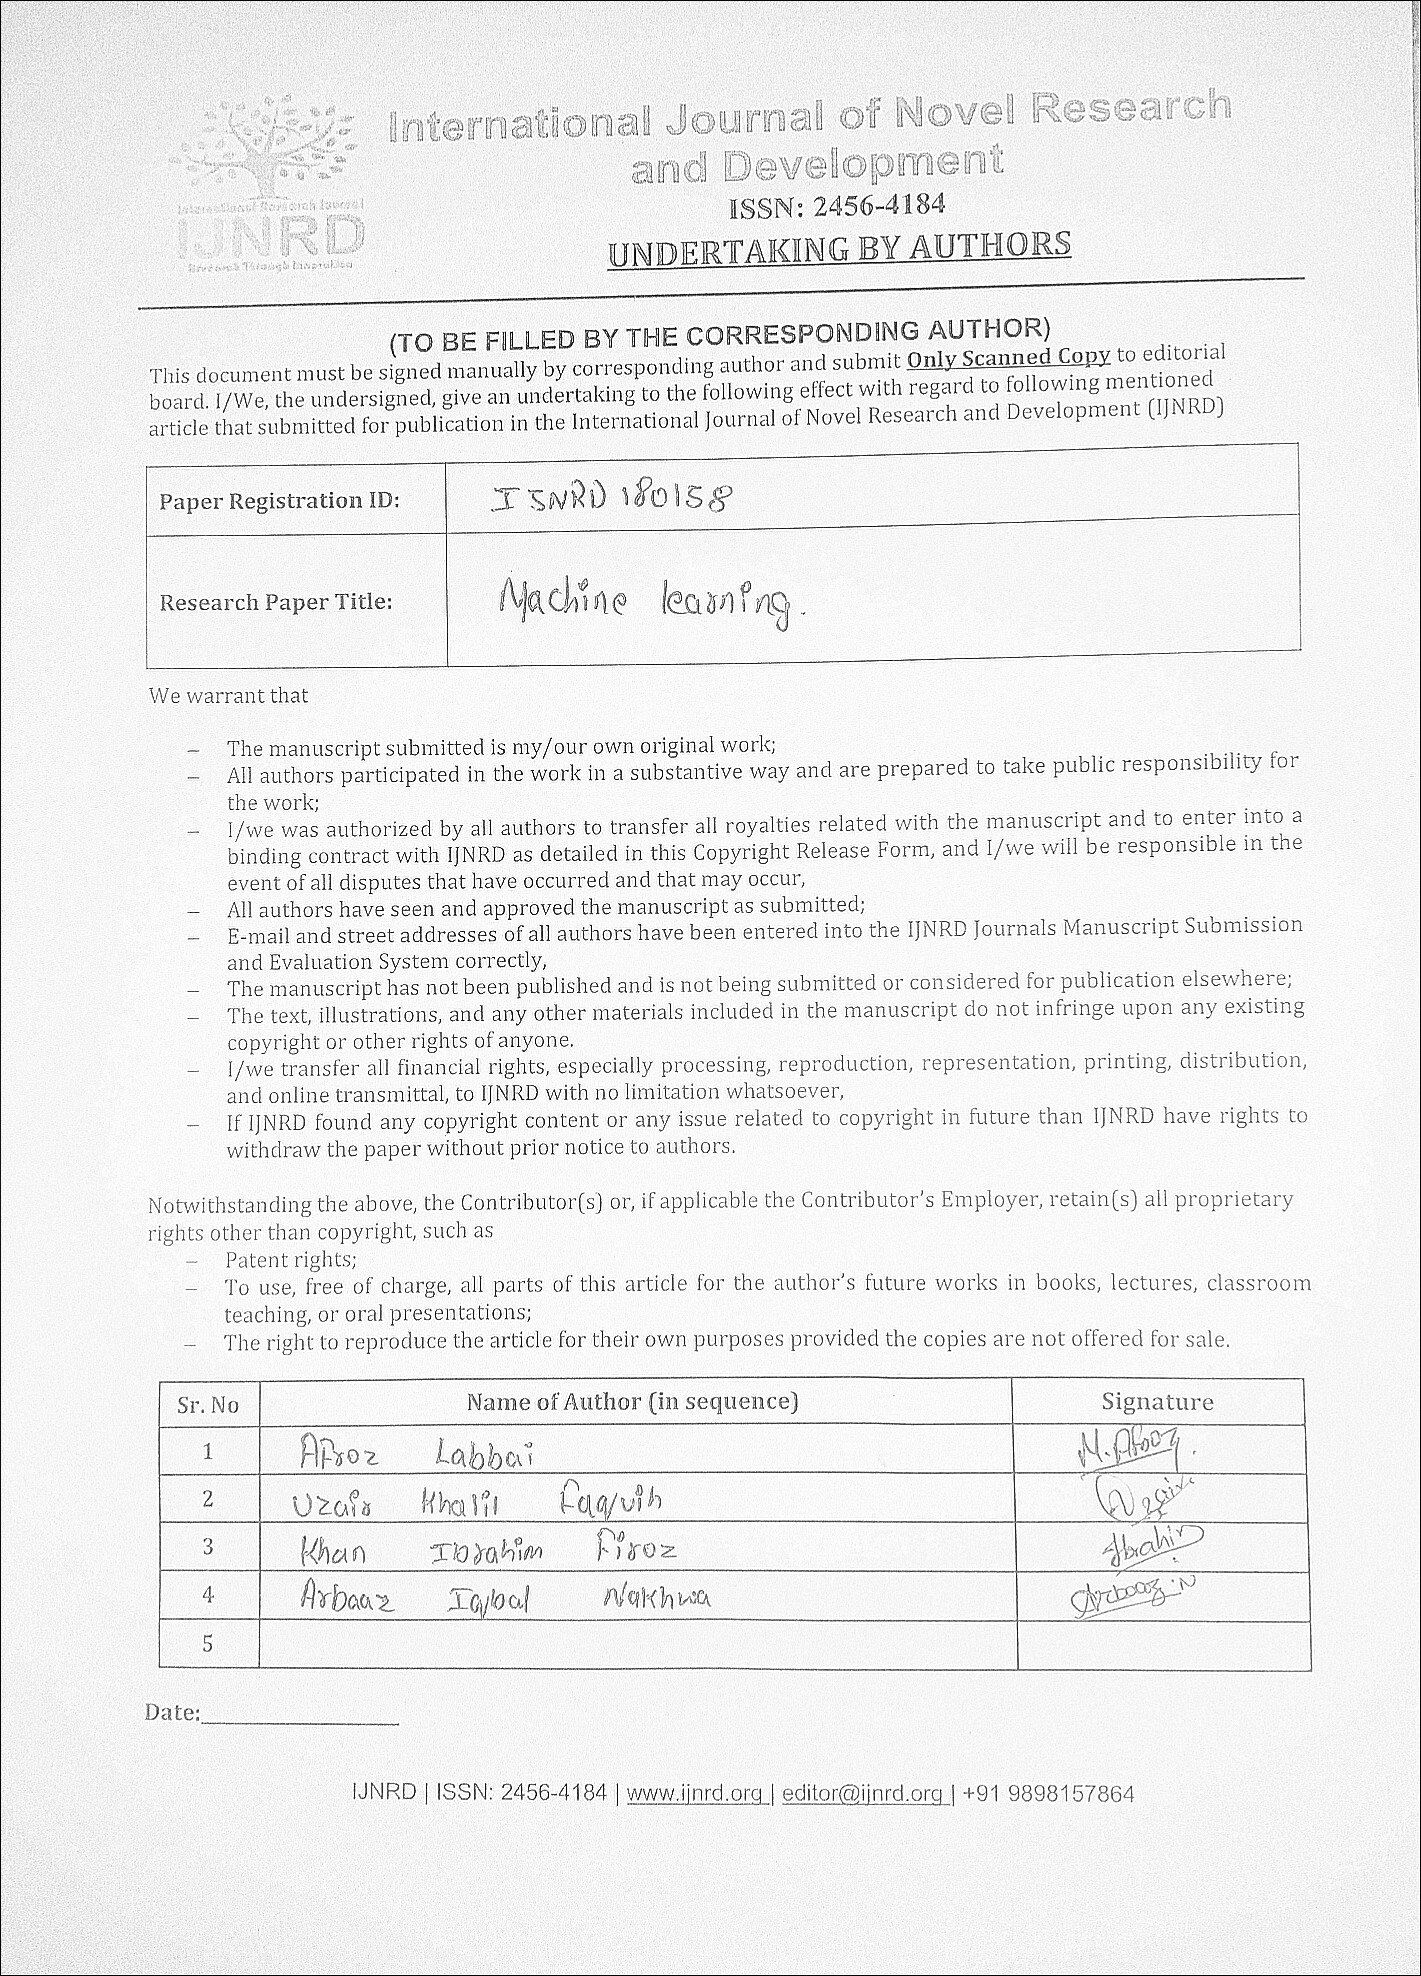 International Journal of Novel Research
and Development
International Research Journal
IJNRD
Research Through Innovation
ISSN: 2456-4184
UNDERTAKING BY AUTHORS
(TO BE FILLED BY THE CORRESPONDING AUTHOR)
This document must be signed manually by corresponding author and submit Only Scanned Copy to editorial
board. I/We, the undersigned, give an undertaking to the following effect with regard to following mentioned
article that submitted for publication in the International Journal of Novel Research and Development (IJNRD)
Paper Registration ID: IJNRD180158
Research Paper Title: Machine learning.
We warrant that
– The manuscript submitted is my/our own original work;
– All authors participated in the work in a substantive way and are prepared to take public responsibility for
the work;
– I/we was authorized by all authors to transfer all royalties related with the manuscript and to enter into a
binding contract with IJNRD as detailed in this Copyright Release Form, and I/we will be responsible in the
event of all disputes that have occurred and that may occur,
– All authors have seen and approved the manuscript as submitted;
– E-mail and street addresses of all authors have been entered into the IJNRD Journals Manuscript Submission
and Evaluation System correctly,
– The manuscript has not been published and is not being submitted or considered for publication elsewhere;
– The text, illustrations, and any other materials included in the manuscript do not infringe upon any existing
copyright or other rights of anyone.
– I/we transfer all financial rights, especially processing, reproduction, representation, printing, distribution,
and online transmittal, to IJNRD with no limitation whatsoever,
– If IJNRD found any copyright content or any issue related to copyright in future than IJNRD have rights to
withdraw the paper without prior notice to authors.
Notwithstanding the above, the Contributor(s) or, if applicable the Contributor's Employer, retain(s) all proprietary
rights other than copyright, such as
– Patent rights;
– To use, free of charge, all parts of this article for the author's future works in books, lectures, classroom
teaching, or oral presentations;
– The right to reproduce the article for their own purposes provided the copies are not offered for sale.
Sr. No Name of Author (in sequence) Signature
1 Afroz Labbai M. Afooz.
2 Uzair Khalil Faquih Uzair
3 Khan Ibrahim Firoz Ibrahim
4 Arbaaz Iqbal Nakhwa Arbaaz.N
5
Date:
IJNRD | ISSN: 2456-4184 | www.ijnrd.org | editor@ijnrd.org | +91 9898157864